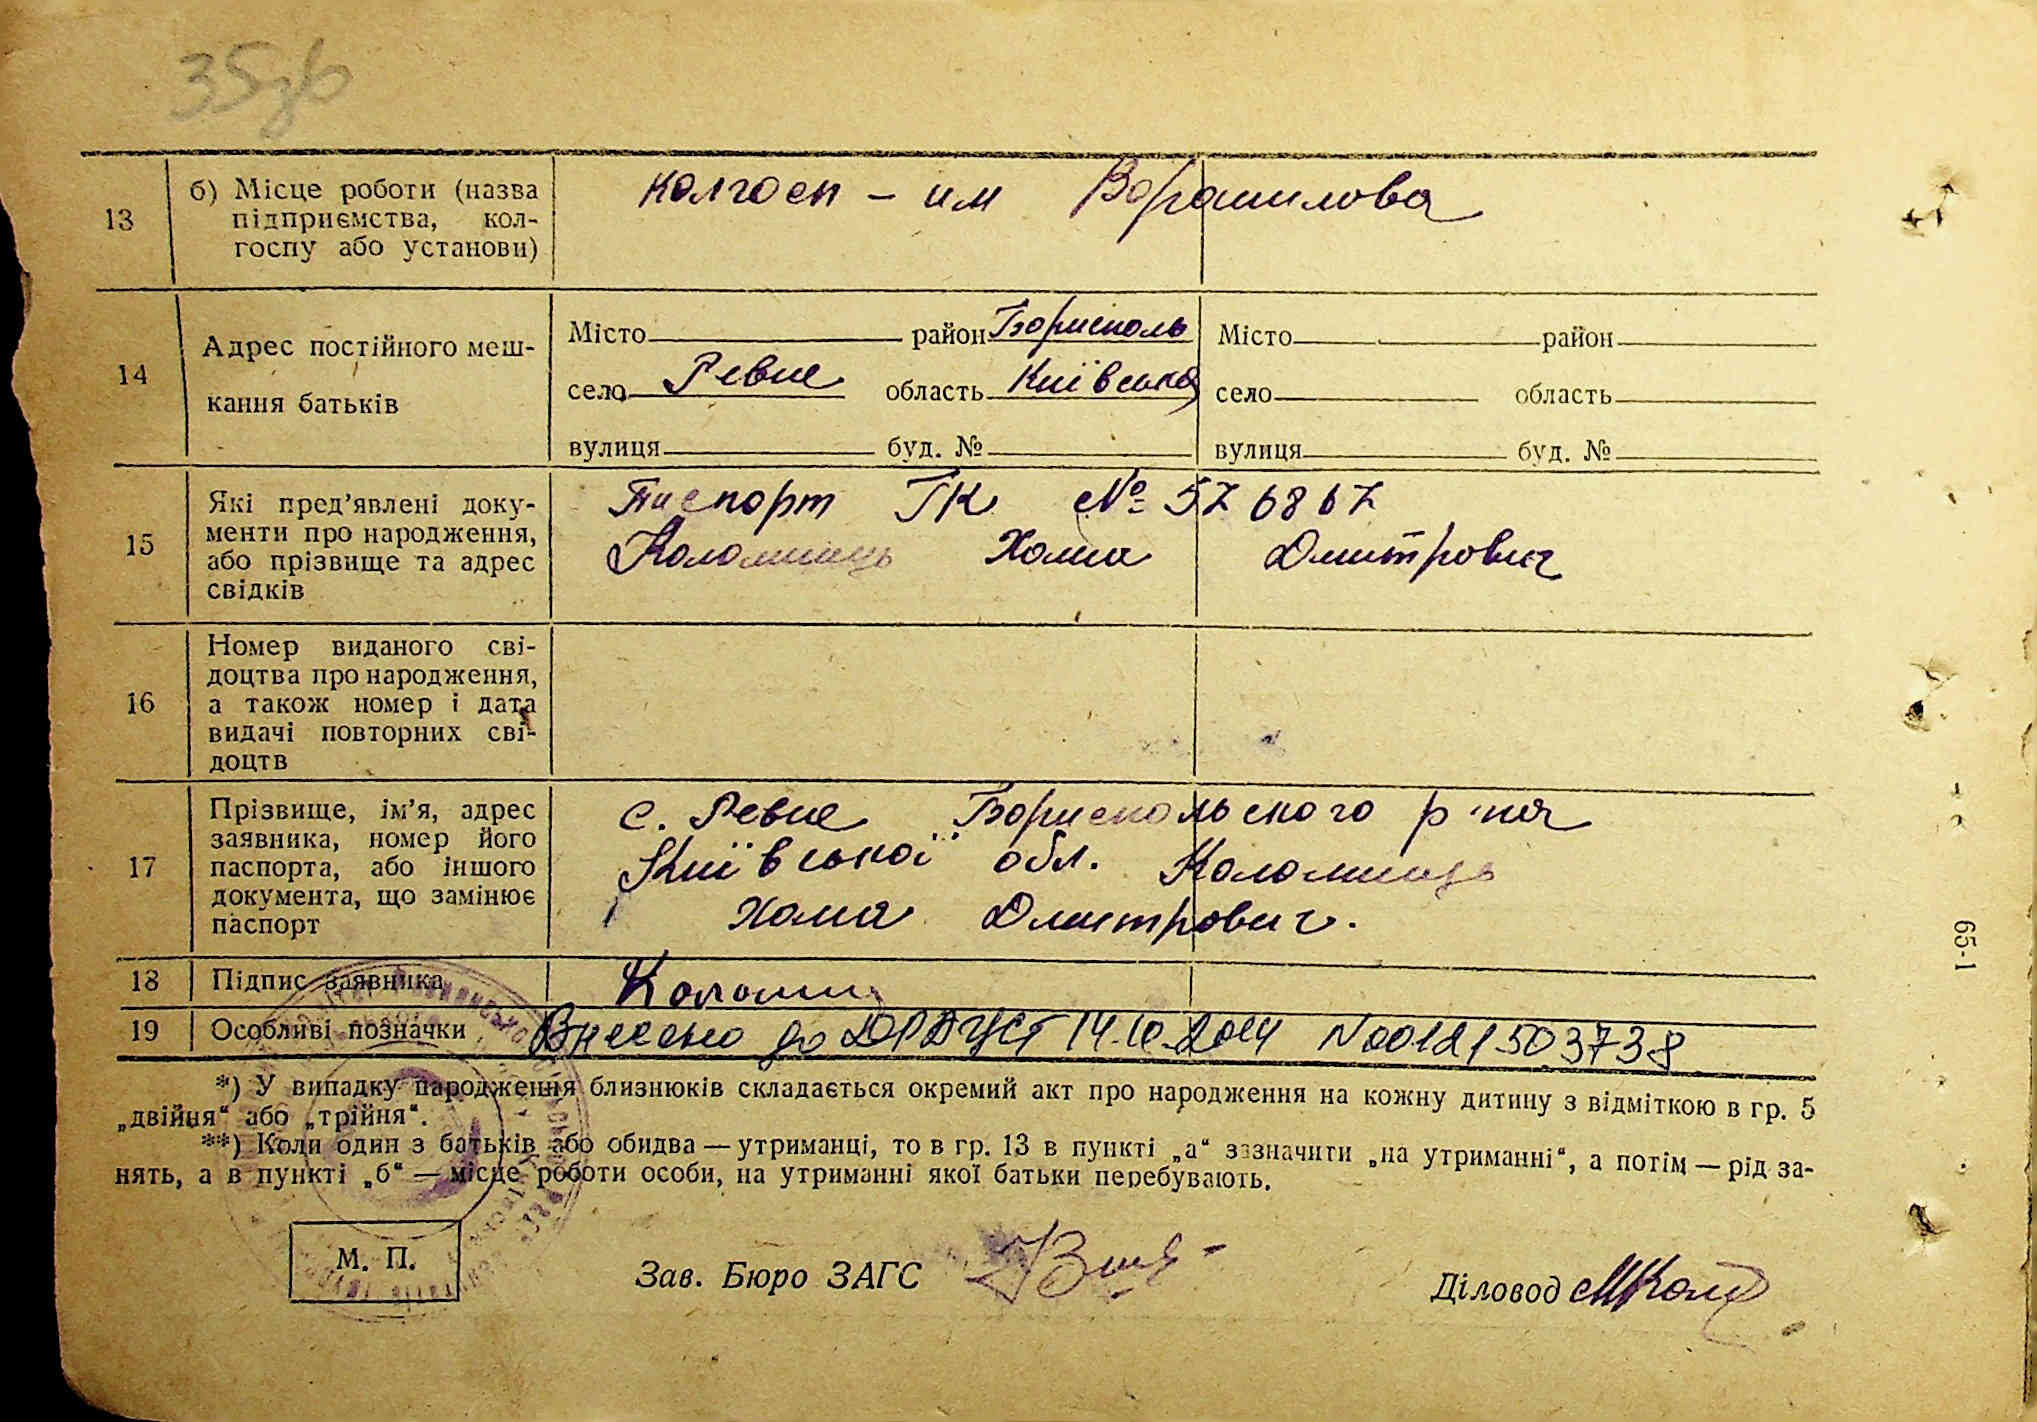 35зв
13
б) Місце роботи (назва
підприємства, кол-
госпу або установи)
колгосп - им Ворошилова
14
Адрес постійного меш-
кання батьків
Місто район Борисполь
село Ревне область Київська
вулиця буд. №
Місто район
село область
вулиця буд. №
15
Які пред’явлені доку-
менти про народження,
або прізвище та адрес
свідків
Паспорт ГК № 576867
Коломиець Хома Дмитрович
16
Номер виданого сві-
доцтва про народження,
а також номер і дата
видачі повторних сві-
доцтв
17
Прізвище, ім’я, адрес
заявника, номер його
паспорта, або іншого
документа, що замінює
паспорт
с. Ревне Бориспольского р-ня
Київської обл. Коломиець
Хома Дмитрович.
18
Підпис заявника
Коломи
19
Особливі позначки
Внесено до ДРАЦСГ 14.10.2014 N00121503738
*) У випадку народження близнюків складається окремий акт про народження на кожну дитину з відміткою в гр. 5
„двійня“ або „трійня“.
**) Коли один з батьків або обидва — утриманці, то в гр. 13 в пункті „а“ зазначити „на утриманні“, а потім — рід за-
нять, а в пункті „б“ — місце роботи особи, на утриманні якої батьки перебувають.
М. П.
Зав. Бюро ЗАГС
Діловод
65-1